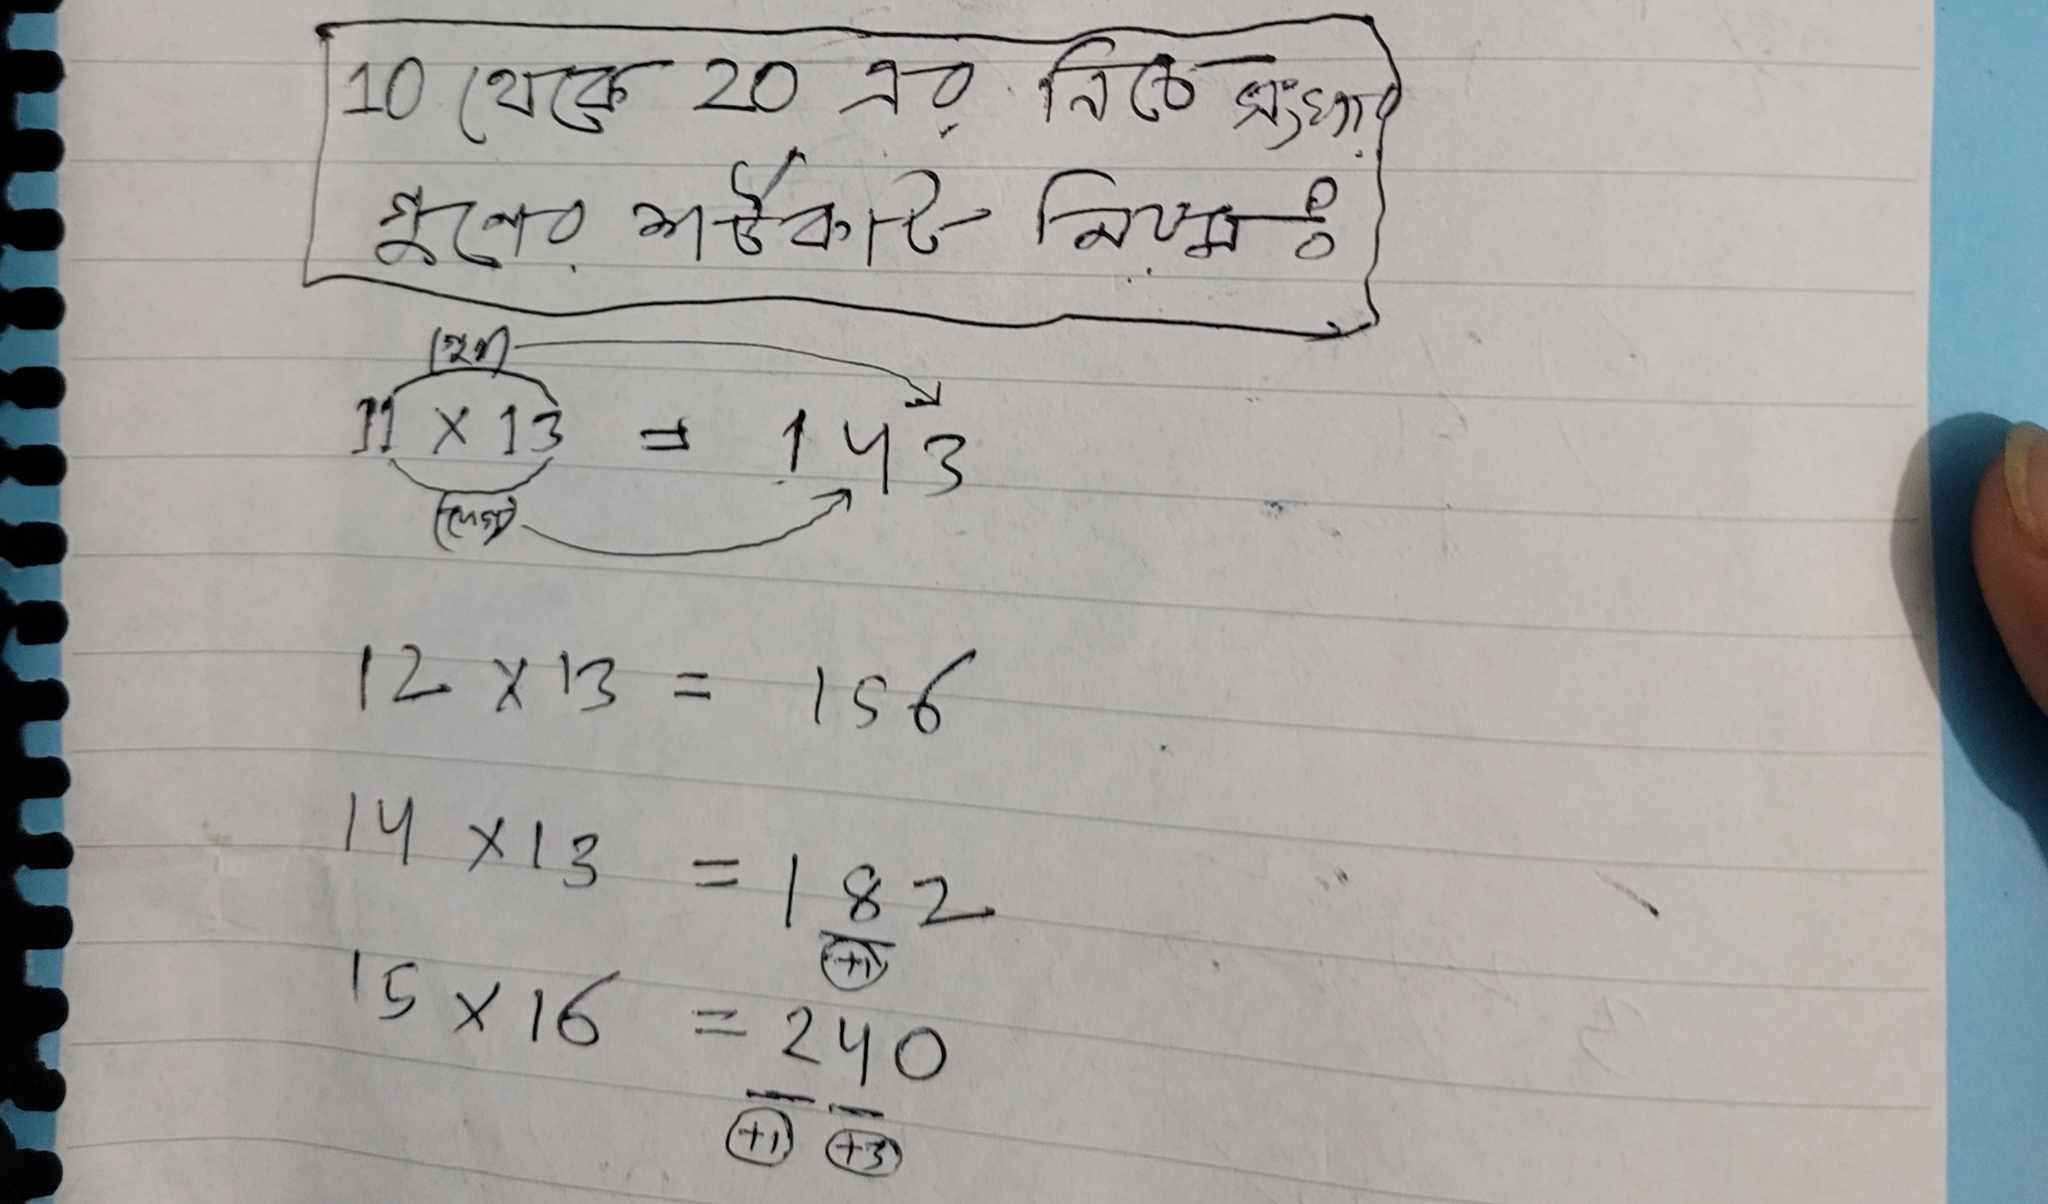 10 থেকে 20 এর নিচে সংখ্যার
গুনের শর্টকাট নিয়মঃ
গুন
11 × 13 = 143
যোগ
12 × 13 = 156
14 × 13 = 182
+1
15 × 16 = 240
+1 +3